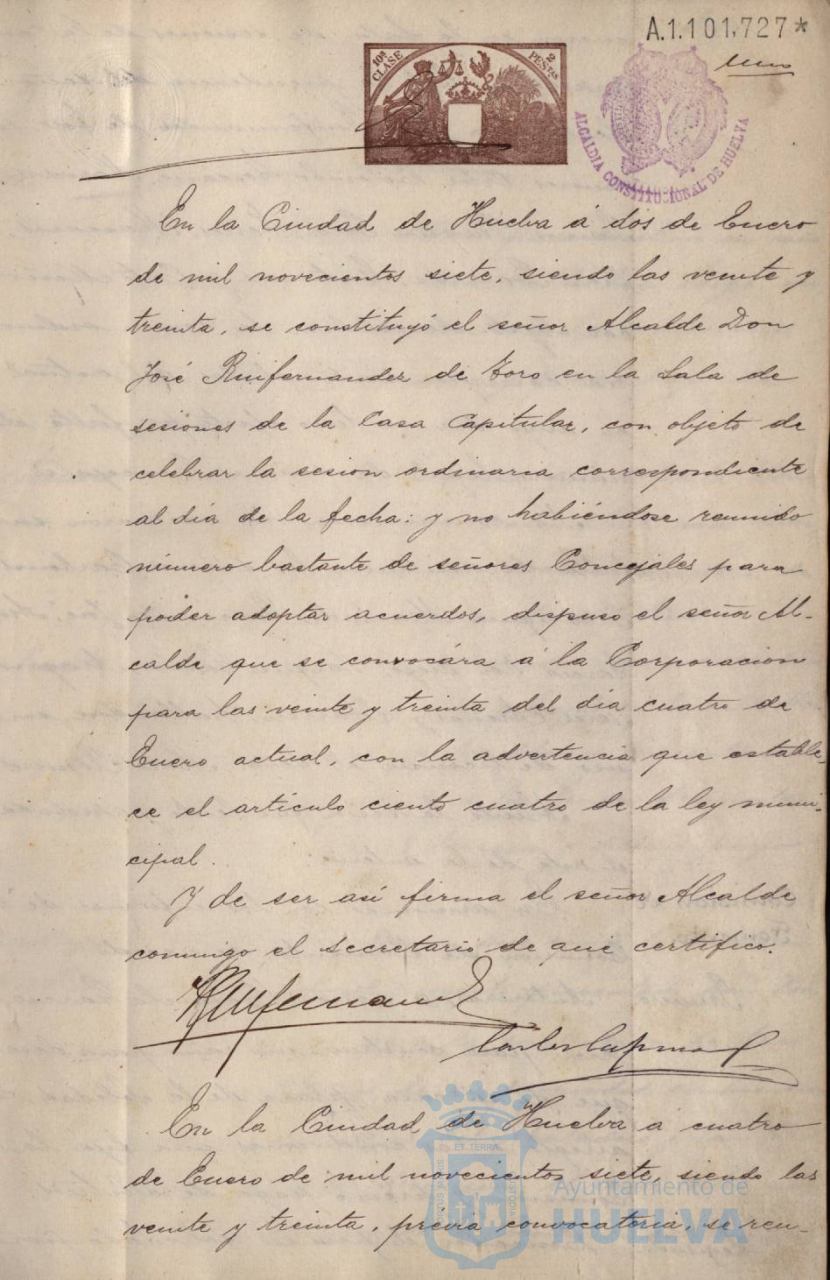 A.1.101,727*
10ª CLASE
2 PEStas
ALCALDIA CONSTITUCIONAL DE HUELVA
En la Ciudad de Huelva á dos de Enero
de mil novecientos siete, siendo las veinte y
treinta, se constituyó el señor Alcalde Don
José Ruifernandez de Toro en la Sala de
sesiones de la Casa Capitular, con objeto de
celebrar la sesion ordinaria correspondiente
al día de la fecha: y no habiéndose reunido
número bastante de señores Concejales para
poder adoptar acuerdos, dispuso el señor Al-
calde que se convocára á la Corporacion
para las veinte y treinta del día cuatro de
Enero actual, con la advertencia que estable-
ce el artículo ciento cuatro de la ley muni-
cipal.
Y de ser así firma el señor Alcalde
conmigo el secretario de que certifico.
En la Ciudad de Huelva a cuatro
de Enero de mil novecientos siete, siendo las
veinte y treinta, previa convocatoria, se reu-
ET TERRA
Ayuntamiento de
HUELVA